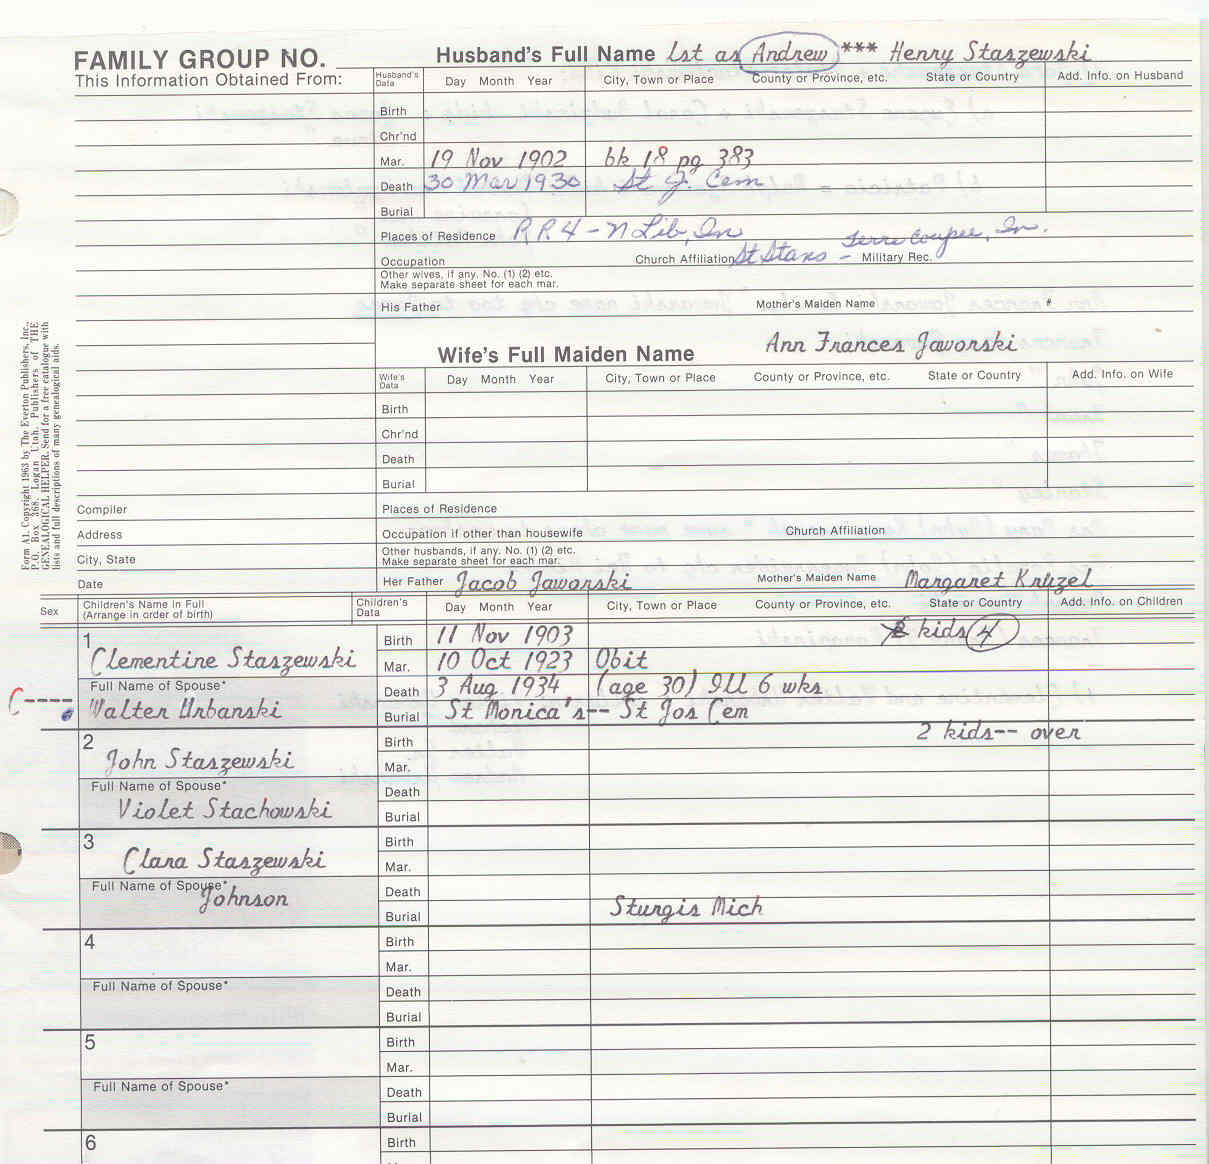 FAMILY GROUP NO. Husband's Full Name Lst as Andrew *** Henry Staszewski
This Information Obtained From:
Husband's Data Day Month Year City, Town or Place County or Province, etc. State or Country Add. Info. on Husband
Birth
Chr'nd
Mar. 19 Nov 1902 bk 18 pg 383
Death 30 Mar 1930 St J. Cem
Burial
Places of Residence RR4 - N Lib, In
Terre Coupee, In.
Occupation Church Affiliation St Stans - Military Rec.
Other wives, if any. No. (1) (2) etc.
Make separate sheet for each mar.
His Father Mother's Maiden Name
Wife's Full Maiden Name Ann Frances Jaworski
Wife's Data Day Month Year City, Town or Place County or Province, etc. State or Country Add. Info. on Wife
Birth
Chr'nd
Death
Burial
Form A1. Copyright 1963 by The Everton Publishers, Inc.,
P.O. Box 368, Logan Utah. Publishers of THE
GENEALOGICAL HELPER. Send for a free catalogue with
lists and full descriptions of many genealogical aids.
Compiler Places of Residence
Address Occupation if other than housewife Church Affiliation
City, State Other husbands, if any. No. (1) (2) etc.
Make separate sheet for each mar.
Date Her Father Jacob Jaworski Mother's Maiden Name Margaret Kruzel
Sex Children's Name in Full
(Arrange in order of birth) Children's Data Day Month Year City, Town or Place County or Province, etc. State or Country Add. Info. on Children
1 Birth 11 Nov 1903 kids 4
Clementine Staszewski Mar. 10 Oct 1923 Obit
Full Name of Spouse* Death 3 Aug 1934 (age 30) Ill 6 wks
Walter Urbanski Burial St Monica's-- St Jos Cem
2 Birth 2 kids-- over
John Staszewski Mar.
Full Name of Spouse* Death
Violet Stachowski Burial
3 Birth
Clara Staszewski Mar.
Full Name of Spouse* Death
Johnson Burial Sturgis Mich
4 Birth
Mar.
Full Name of Spouse* Death
Burial
5 Birth
Mar.
Full Name of Spouse* Death
Burial
6 Birth